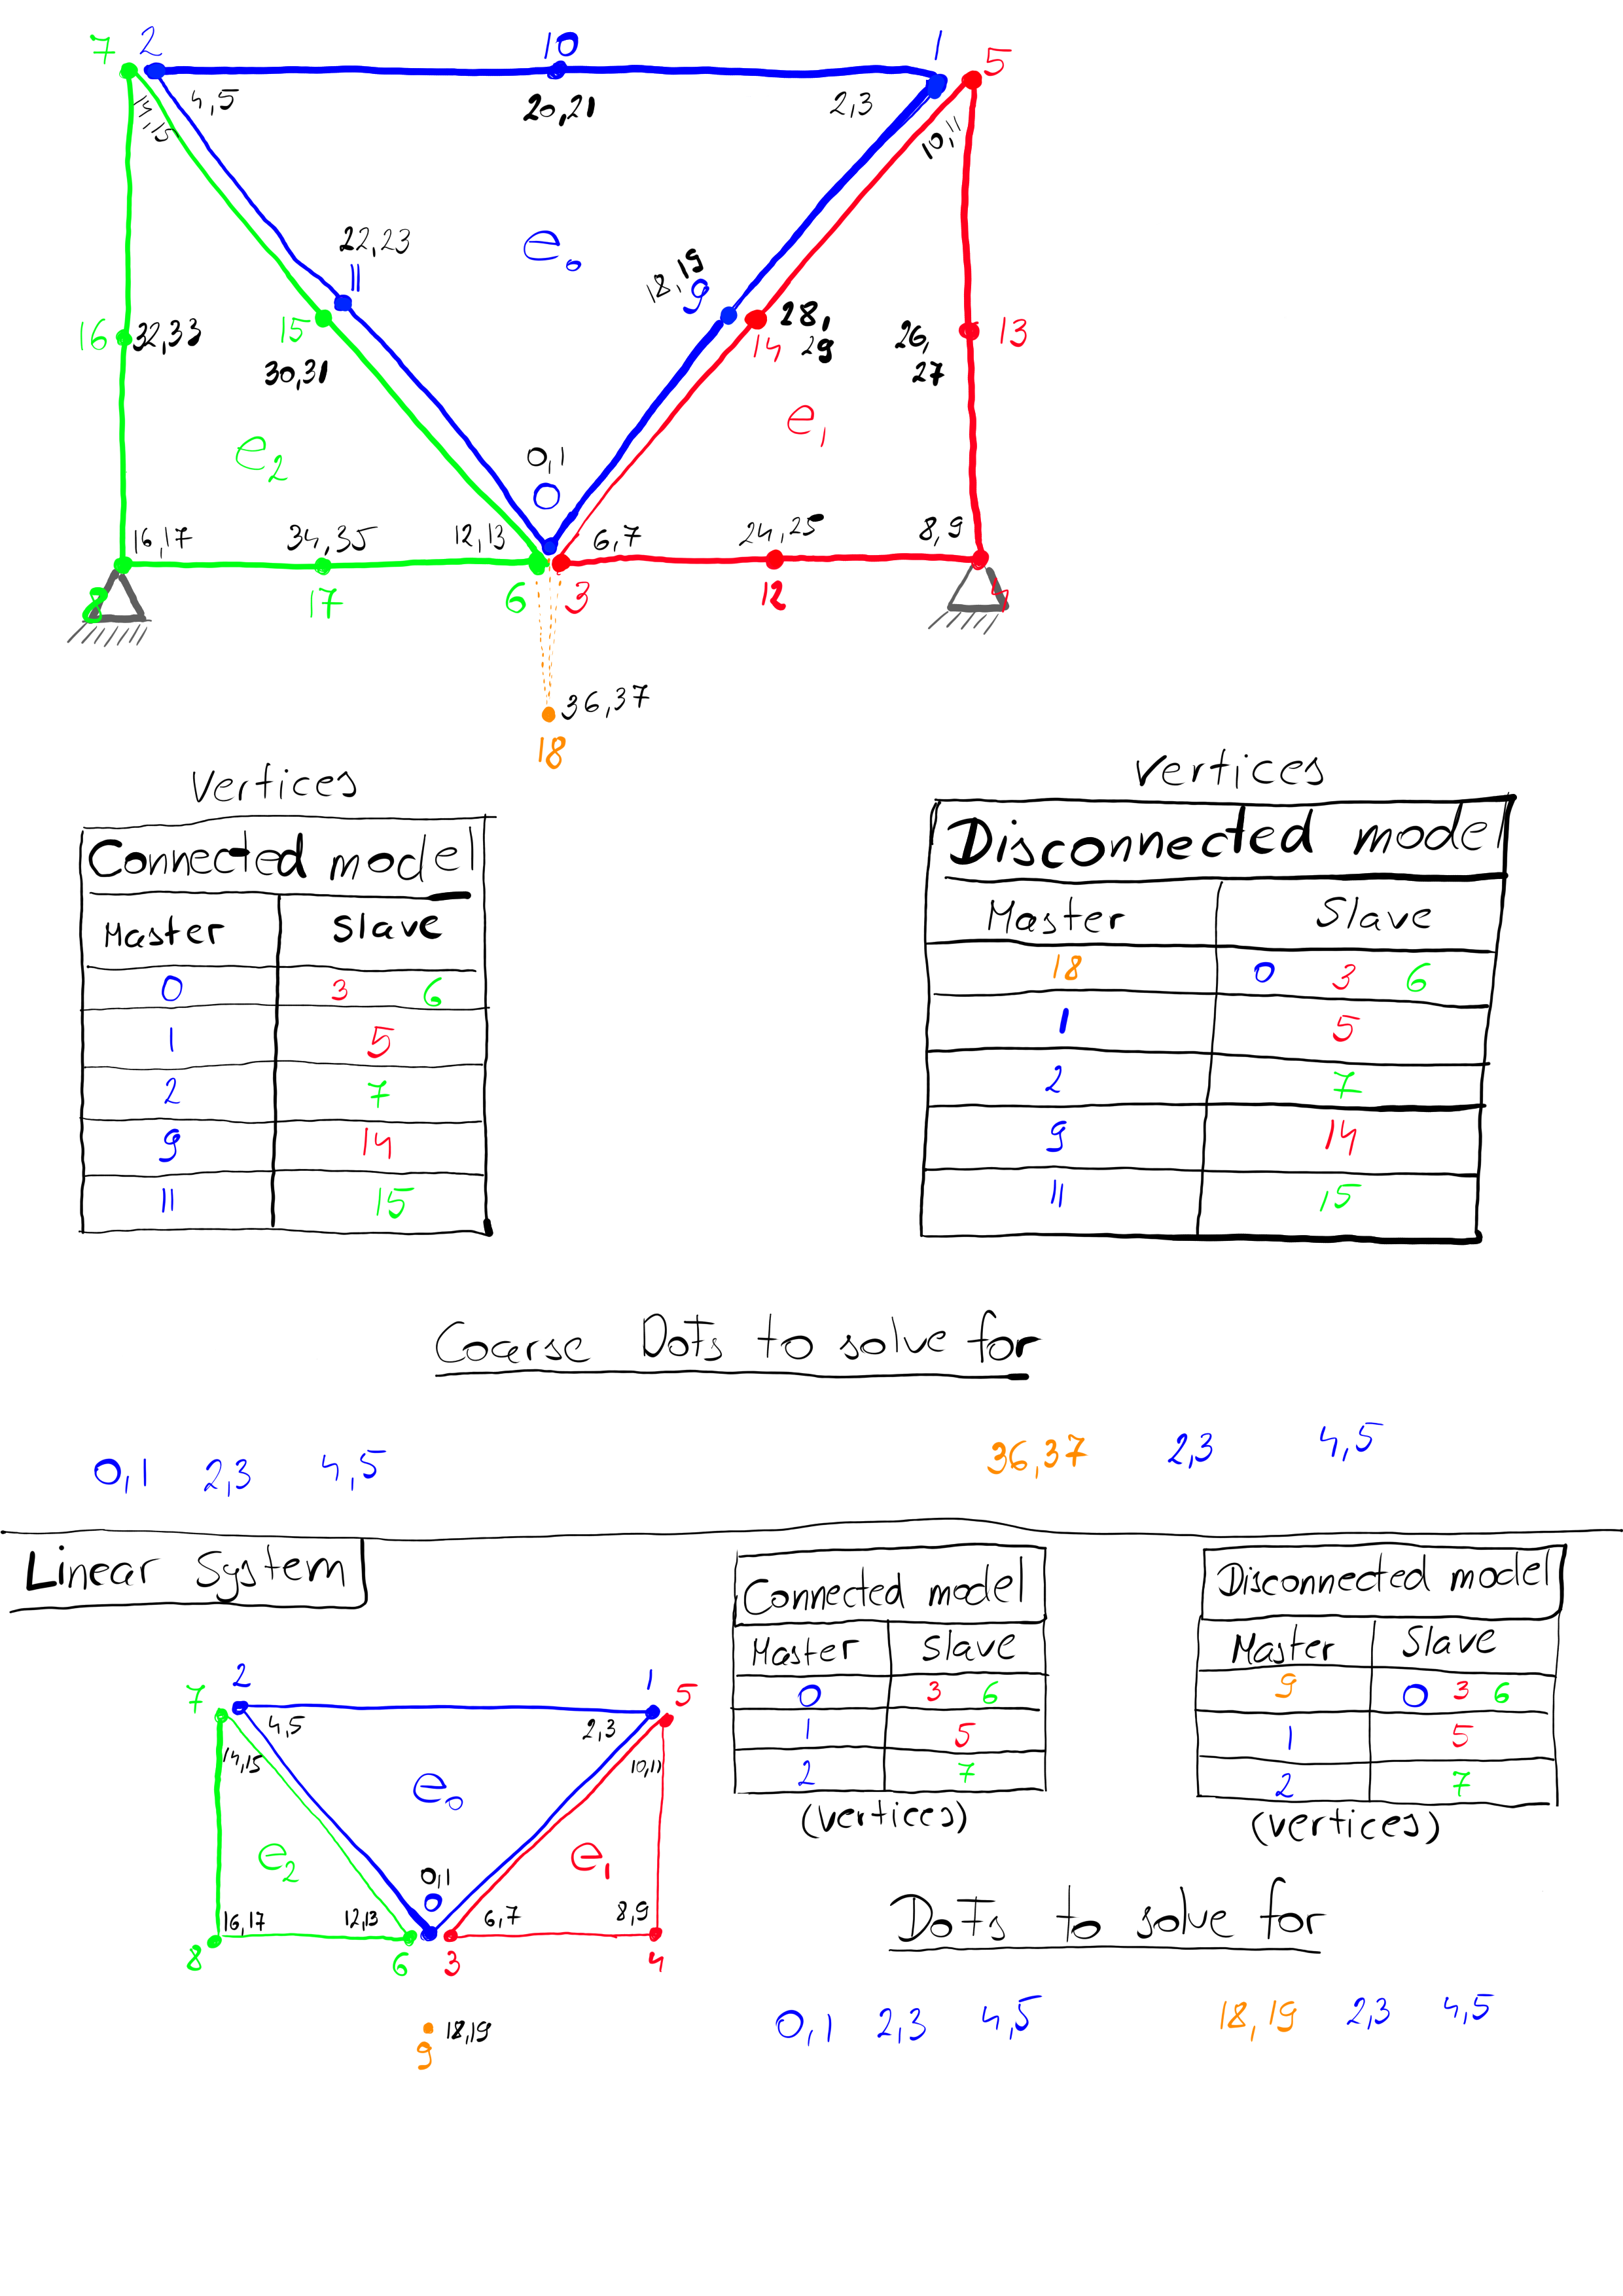 7 2 10 1 5
14,15 4,5 20,21 2,3 10,11
22,23
11
e0
18,19
9
16 32,33
15
30,31
28,
29
14
26,
27
13
e2
e1
0,1
0
16,17 34,35 12,13 6,7 24,25 8,9
8 17 6 3 12 4
36,37
18
vertices
Connected model
Master Slave
0 3 6
1 5
2 7
9 14
11 15
vertices
Disconnected model
Master Slave
18 0 3 6
1 5
2 7
9 14
11 15
Coarse DoFs to solve for
0,1 2,3 4,5 36,37 2,3 4,5
Linear System
7 2 1 5
4,5 2,3
14,15 10,11
e0
e2 e1
0,1
0
16,17 12,13 6,7 8,9
8 6 3 4
18,19
9
Connected model
Master Slave
0 3 6
1 5
2 7
(vertices)
Disconnected model
Master Slave
9 0 3 6
1 5
2 7
(vertices)
DoFs to solve for
0,1 2,3 4,5 18,19 2,3 4,5